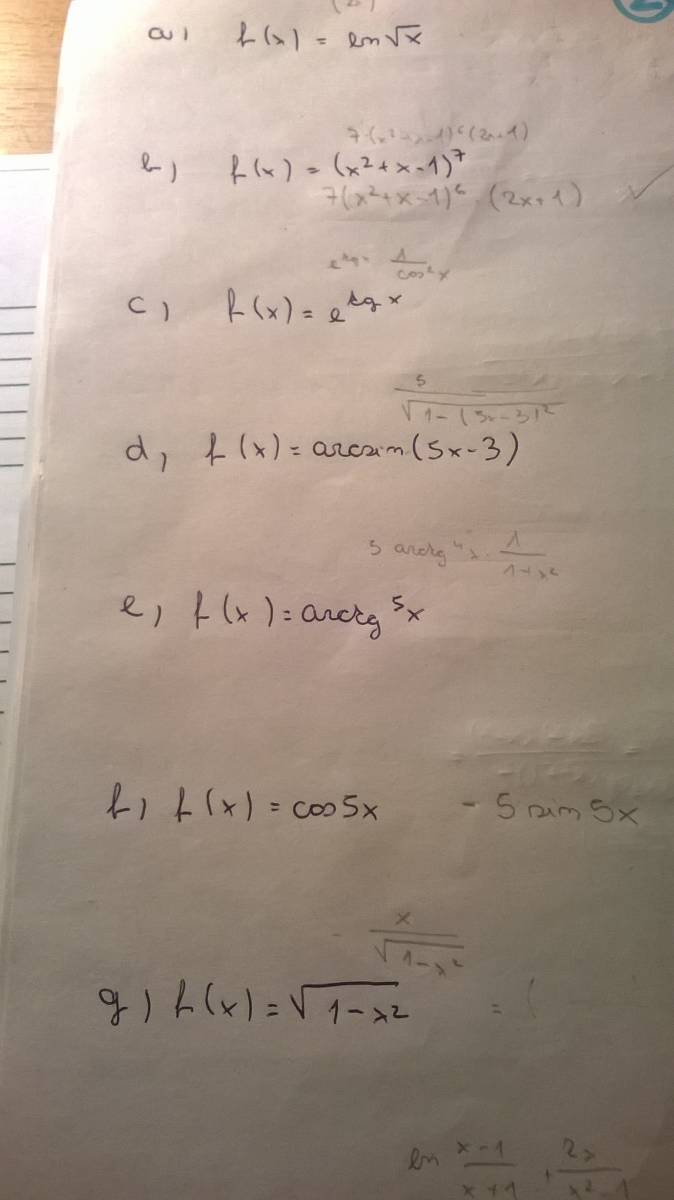 (2)
a) f(x) = ln√x
7(x²+x-1)⁶(2x+1)
b) f(x) = (x²+x-1)⁷
7(x²+x-1)⁶ · (2x+1) ✓
e^tg · 1/cos²x
c) f(x) = e^tg x
5/√1-(5x-3)²
d) f(x) = arcsin(5x-3)
5 arctg⁴x · 1/1+x²
e) f(x) = arctg⁵x
f) f(x) = cos5x - 5 sin 5x
- x/√1-x²
g) f(x) = √1-x² = (
ln x-1/x+1 + 2x/x²-1